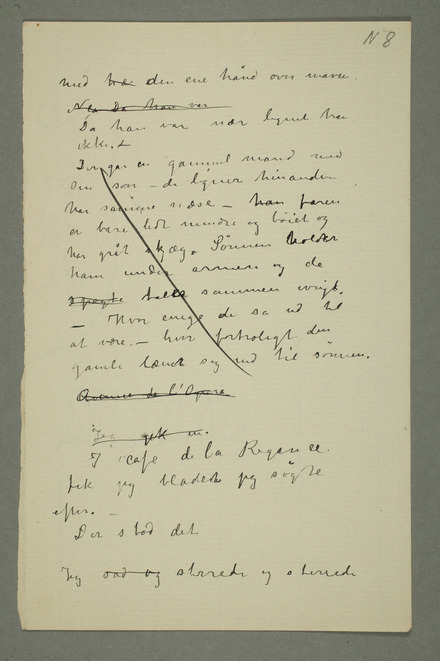 N 8
med træ den ene hånd over maven.
Når Da han var
Da han var nær lignet han
ikke. +
Der gar en gammel mand med
sin son – de ligner hinanden
har samme næse – han faren
er bare lidt mindre og böiet og
har gråt skjæg. Sönnen holder
ham under armen og de
taler sammen ivrigt.
– Hvor enige de sa ud til
at være. – hvor fortroligt den
gamle lænet sig ned til sönnen.
Avenue de l'Opera
Jeg gik en.
I cafe de la Regance.
fik jeg bladet jeg søgte
efter. –
Der stod det
Jeg sad og stirrede og stirrede